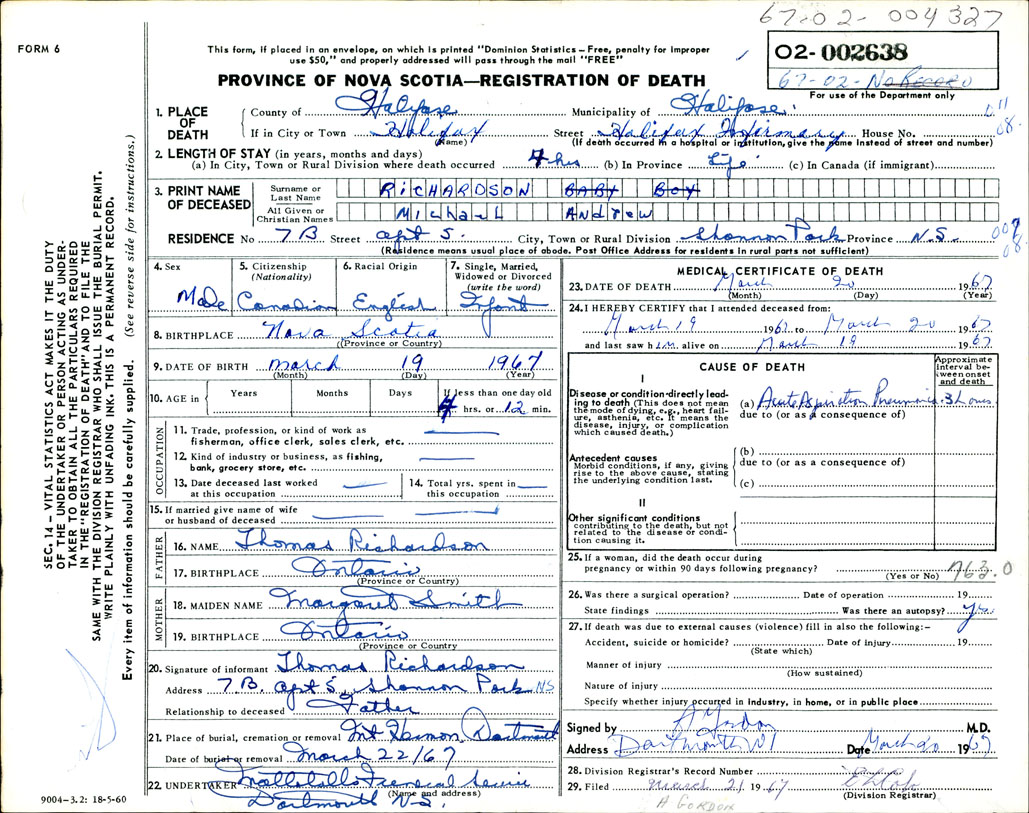 67-02-004327
FORM 6
This form, if placed in an envelope, on which is printed "Dominion Statistics – Free, penalty for improper
use $50," and properly addressed will pass through the mail "FREE"
02-002638
67-02-No Record
For use of the Department only
PROVINCE OF NOVA SCOTIA—REGISTRATION OF DEATH
1. PLACE OF DEATH
County of Halifax Municipality of Halifax
If in City or Town Halifax (Name) Street Halifax Infirmary House No.
(If death occurred in a hospital or institution, give the name instead of street and number)
11
08
2. LENGTH OF STAY (in years, months and days)
(a) In City, Town or Rural Division where death occurred 7 hrs (b) In Province Life (c) In Canada (if immigrant)
3. PRINT NAME OF DECEASED
Surname or Last Name RICHARDSON BABY BOY
All Given or Christian Names Michael Andrew
RESIDENCE No 7B Street apt 5. City, Town or Rural Division Shannon Park Province N.S.
(Residence means usual place of abode. Post Office Address for residents in rural parts not sufficient)
08
4. Sex Male
5. Citizenship (Nationality) Canadian
6. Racial Origin English
7. Single, Married, Widowed or Divorced (write the word) Infant
8. BIRTHPLACE Nova Scotia
(Province or Country)
9. DATE OF BIRTH March 19 1967
(Month) (Day) (Year)
10. AGE in Years Months Days If less than one day old
7 hrs. or 12 min.
OCCUPATION
11. Trade, profession, or kind of work as
fisherman, office clerk, sales clerk, etc.
12. Kind of industry or business, as fishing,
bank, grocery store, etc.
13. Date deceased last worked
at this occupation
14. Total yrs. spent in
this occupation
15. If married give name of wife
or husband of deceased
FATHER
16. NAME Thomas Richardson
17. BIRTHPLACE Ontario
(Province or Country)
MOTHER
18. MAIDEN NAME Margaret Smith
19. BIRTHPLACE Ontario
(Province or Country)
20. Signature of informant Thomas Richardson
Address 7.B. apt 5, Shannon Park NS
Relationship to deceased Father
21. Place of burial, cremation or removal Mt Hermon Dartmouth
Date of burial or removal March 22/67
22. UNDERTAKER Mattatalls Funeral Service
(Name and address)
Dartmouth N.S.
9004–3.2: 18-5-60
MEDICAL CERTIFICATE OF DEATH
23. DATE OF DEATH March 20 1967
(Month) (Day) (Year)
24. I HEREBY CERTIFY that I attended deceased from:
March 19 1967 to March 20 1967
and last saw him alive on March 19 1967
CAUSE OF DEATH
Approximate Interval between onset and death
I
Disease or condition directly leading to death (This does not mean
the mode of dying, e.g., heart failure, asthenia, etc. It means the
disease, injury, or complication
which caused death.)
(a) Acute Aspiration Pneumonia 3 hours
due to (or as a consequence of)
Antecedent causes
Morbid conditions, if any, giving
rise to the above cause, stating
the underlying condition last.
(b)
due to (or as a consequence of)
(c)
II
Other significant conditions
contributing to the death, but not
related to the disease or condition causing it.
25. If a woman, did the death occur during
pregnancy or within 90 days following pregnancy?
(Yes or No)
763.0
26. Was there a surgical operation? Date of operation 19
State findings Was there an autopsy? Yes
27. If death was due to external causes (violence) fill in also the following:–
Accident, suicide or homicide? Date of injury 19
(State which)
Manner of injury
(How sustained)
Nature of injury
Specify whether injury occurred in industry, in home, or in public place
Signed by A Gordon M.D.
Address Dartmouth NS Date March 20 1967
28. Division Registrar's Record Number
29. Filed March 21 1967
(Division Registrar)
A GORDON
SEC. 14 – VITAL STATISTICS ACT MAKES IT THE DUTY
OF THE UNDERTAKER OR PERSON ACTING AS UNDERTAKER TO OBTAIN ALL THE PARTICULARS REQUIRED
IN THE "REGISTRATION OF DEATH" AND TO FILE THE
SAME WITH THE DIVISION REGISTRAR WHO SHALL ISSUE THE BURIAL PERMIT.
WRITE PLAINLY WITH UNFADING INK. THIS IS A PERMANENT RECORD.
Every item of information should be carefully supplied. (See reverse side for instructions.)